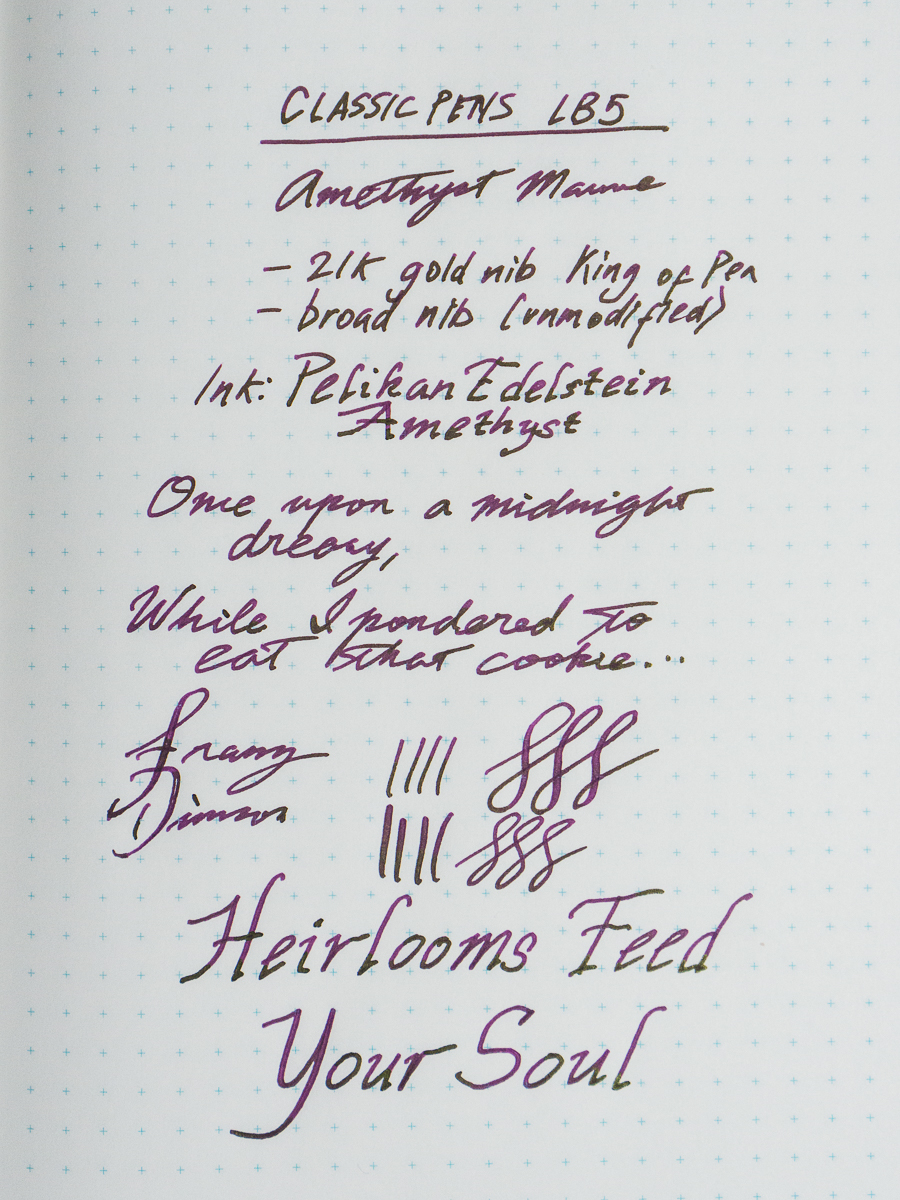 CLASSIC PENS LB5
Amethyst Mauve
- 21K gold nib King of Pen
- broad nib (unmodified)
Ink: Pelikan Edelstein
Amethyst
Once upon a midnight
dreary,
While I pondered to
eat that cookie...
Franny
Dimson
Heirlooms Feed
Your Soul